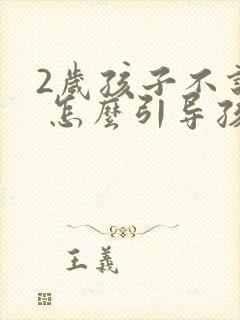 2歲孩子不
怎麼引导孩
王義